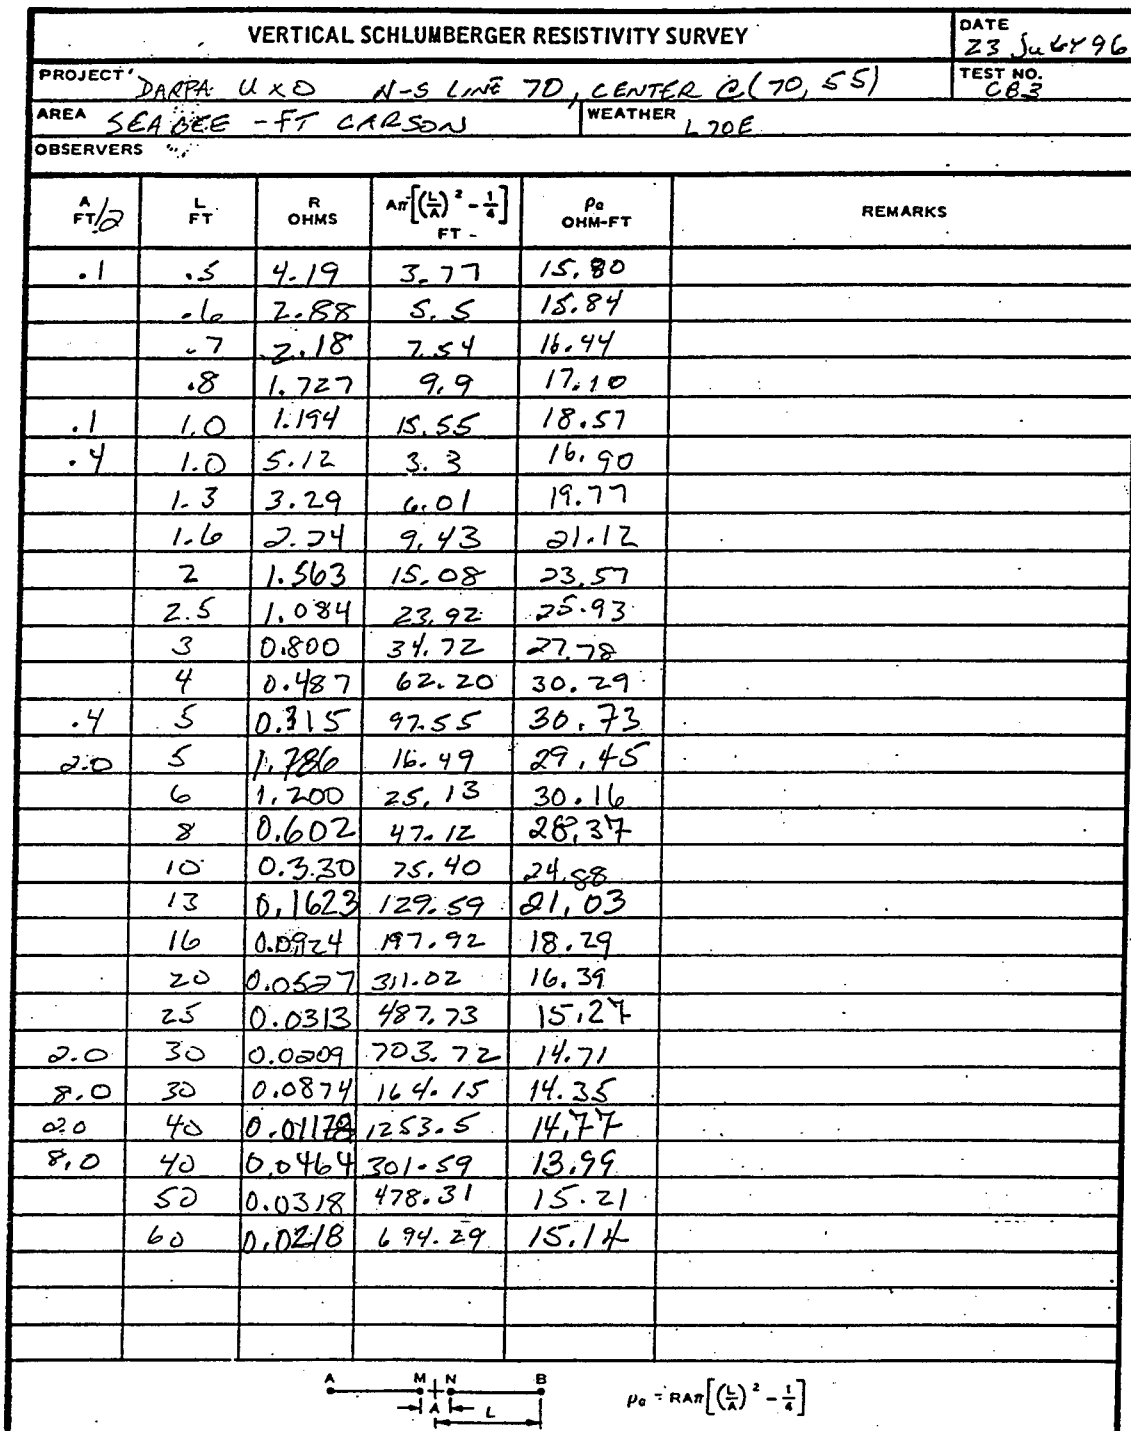 VERTICAL SCHLUMBERGER RESISTIVITY SURVEY
DATE
23 July 96
PROJECT DARPA UXO N-S LINE 70, CENTER @(70,55)
TEST NO.
CB3
AREA SEABEE - FT CARSON
WEATHER L70E
OBSERVERS
A FT/2 L FT R OHMS Aπ[(L/A)² - 1/4] FT - ρa OHM-FT REMARKS
.1 .5 4.19 3.77 15.80
.6 2.88 5.5 15.84
.7 2.18 7.54 16.44
.8 1.727 9.9 17.10
.1 1.0 1.194 15.55 18.57
.4 1.0 5.12 3.3 16.90
1.3 3.29 6.01 19.77
1.6 2.24 9.43 21.12
2 1.563 15.08 23.57
2.5 1.084 23.92 25.93
3 0.800 34.72 27.78
4 0.487 62.20 30.29
.4 5 0.315 97.55 30.73
2.0 5 1.786 16.49 29.45
6 1.200 25.13 30.16
8 0.602 47.12 28.37
10 0.330 75.40 24.88
13 0.1623 129.59 21.03
16 0.0924 197.92 18.29
20 0.0527 311.02 16.39
25 0.0313 487.73 15.27
2.0 30 0.0209 703.72 14.71
8.0 30 0.0874 164.15 14.35
2.0 40 0.01178 1253.5 14.77
8.0 40 0.0464 301.59 13.99
50 0.0318 478.31 15.21
60 0.0218 694.29 15.14
A M N B
A L
ρa = RAπ[(L/A)² - 1/4]